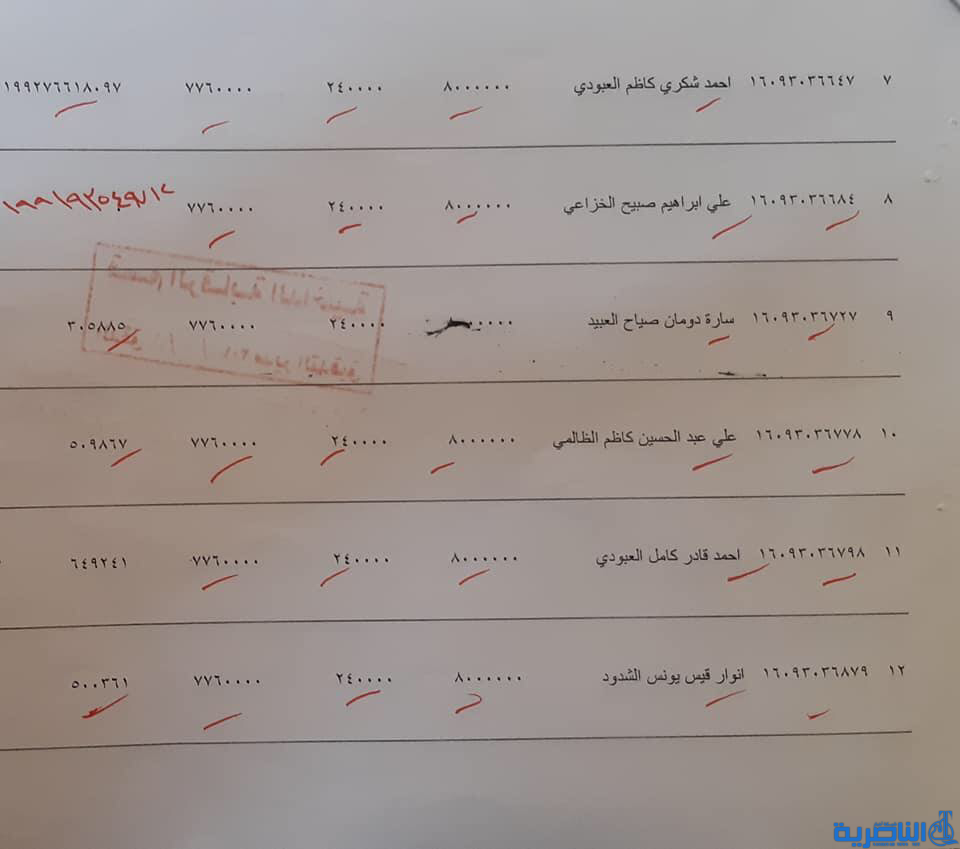 ٧ ١٦٠٩٣٠٣٦٦٤٧ احمد شكري كاظم العبودي ٨٠٠٠٠٠٠ ٢٤٠٠٠٠ ٧٧٦٠٠٠٠ ١٩٩٢٧٦٦١٨٠٩٧
٨ ١٦٠٩٣٠٣٦٦٨٤ علي ابراهيم صبيح الخزاعي ٨٠٠٠٠٠٠ ٢٤٠٠٠٠ ٧٧٦٠٠٠٠
٩ ١٦٠٩٣٠٣٦٧٢٧ سارة دومان صياح العبيد ٢٤٠٠٠٠ ٧٧٦٠٠٠٠ ٣٠٥٨٨٥
قسم الرقابة الداخلية
١٠ ١٦٠٩٣٠٣٦٧٧٨ علي عبد الحسين كاظم الظالمي ٨٠٠٠٠٠٠ ٢٤٠٠٠٠ ٧٧٦٠٠٠٠ ٥٠٩٨٦٧
١١ ١٦٠٩٣٠٣٦٧٩٨ احمد قادر كامل العبودي ٨٠٠٠٠٠٠ ٢٤٠٠٠٠ ٧٧٦٠٠٠٠ ٦٤٩٢٤١
١٢ ١٦٠٩٣٠٣٦٨٧٩ انوار قيس يونس الشدود ٨٠٠٠٠٠٠ ٢٤٠٠٠٠ ٧٧٦٠٠٠٠ ٥٠٠٣٦١
الناصرية